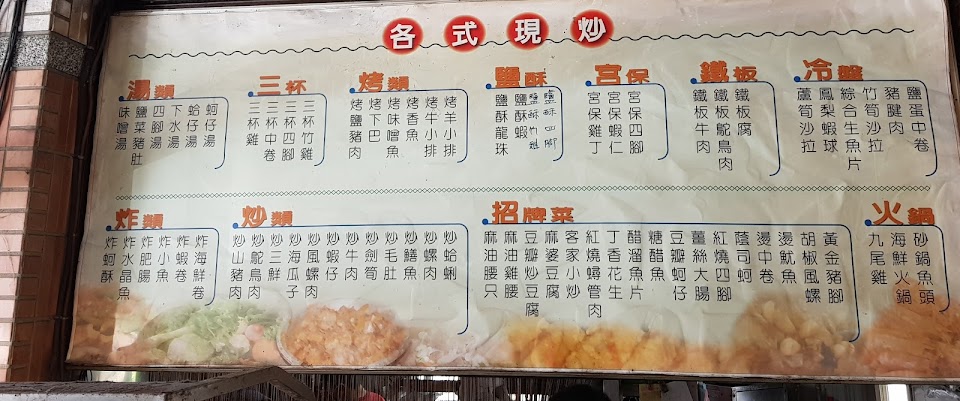 各式現炒
湯類
味噌湯
鹽菜豬肚
四腳湯
下水湯
蛤仔湯
蚵仔湯
三杯
三杯雞
三杯中卷
三杯四腳
三杯竹雞
烤類
烤鹽豬肉
烤下巴
烤味噌魚
烤香魚
烤牛小排
烤羊小排
鹽酥
鹽酥龍珠
鹽酥蝦
鹽酥竹雞
鹽酥四腳
宮保
宮保雞丁
宮保蝦仁
宮保四腳
鐵板
鐵板牛肉
鐵板鴕鳥肉
鐵板腐
冷盤
蘆筍沙拉
鳳梨蝦球
綜合生魚片
竹筍沙拉
豬腱肉
鹽蛋中卷
炸類
炸蚵酥
炸水晶魚
炸肥腸
炸小魚
炸蝦卷
炸海鮮卷
炒類
炒山豬肉
炒鴕鳥肉
炒三鮮
炒海瓜子
炒風螺肉
炒蝦仔
炒牛肉
炒劍筍
炒毛肚
炒鱔魚
炒螺肉
炒蛤蜊
招牌菜
麻油腰只
麻油雞腰
豆瓣炒豆腐
麻婆豆腐
客家小炒
紅燒蟳管肉
丁香花生
醋溜魚片
糖醋魚
豆瓣蚵仔
薑絲大腸
紅燒四腳
蔭司蚵
燙中卷
燙魷魚
胡椒風螺
黃金豬腳
火鍋
九尾雞
海鮮火鍋
砂鍋魚頭